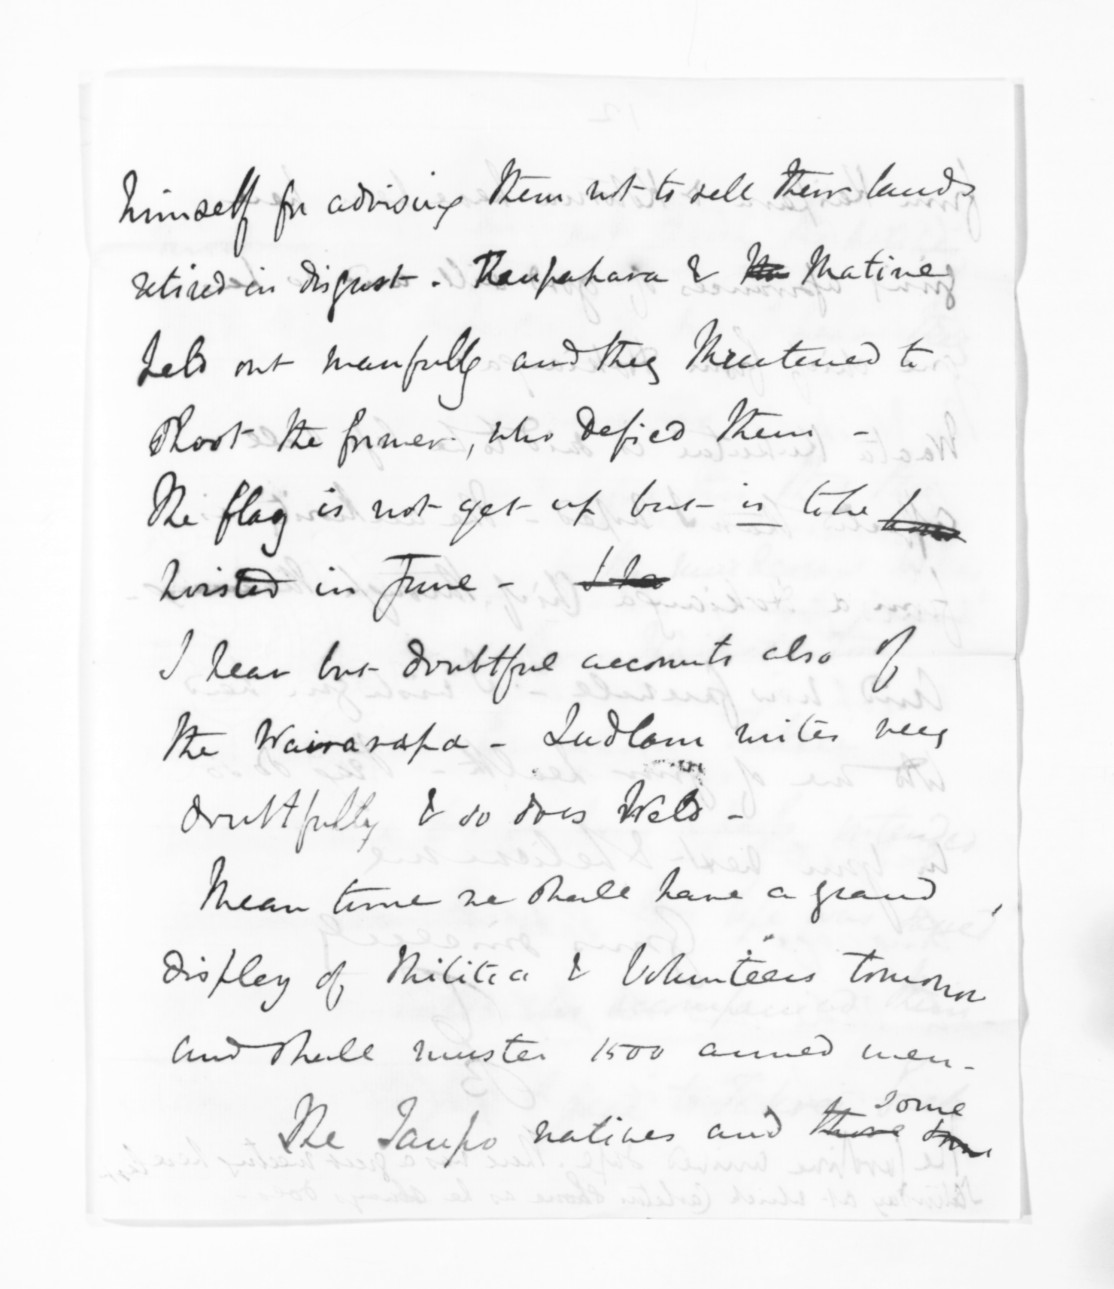 himself for advising them not to sell their lands
retired in disgust. Rauparaha & Matene
held out manfully and they threatened to
shoot the former, who defied them -
The flag is not yet up but is to be
hoisted in June -
I hear but doubtful accounts also of
the Wairarapa - Ludlam writes very
doubtfully & so does Weld -
Mean time we shall have a grand
display of Militia & Volunteers tomorrow
and shall muster 1500 armed men -
The Taupo natives and those some